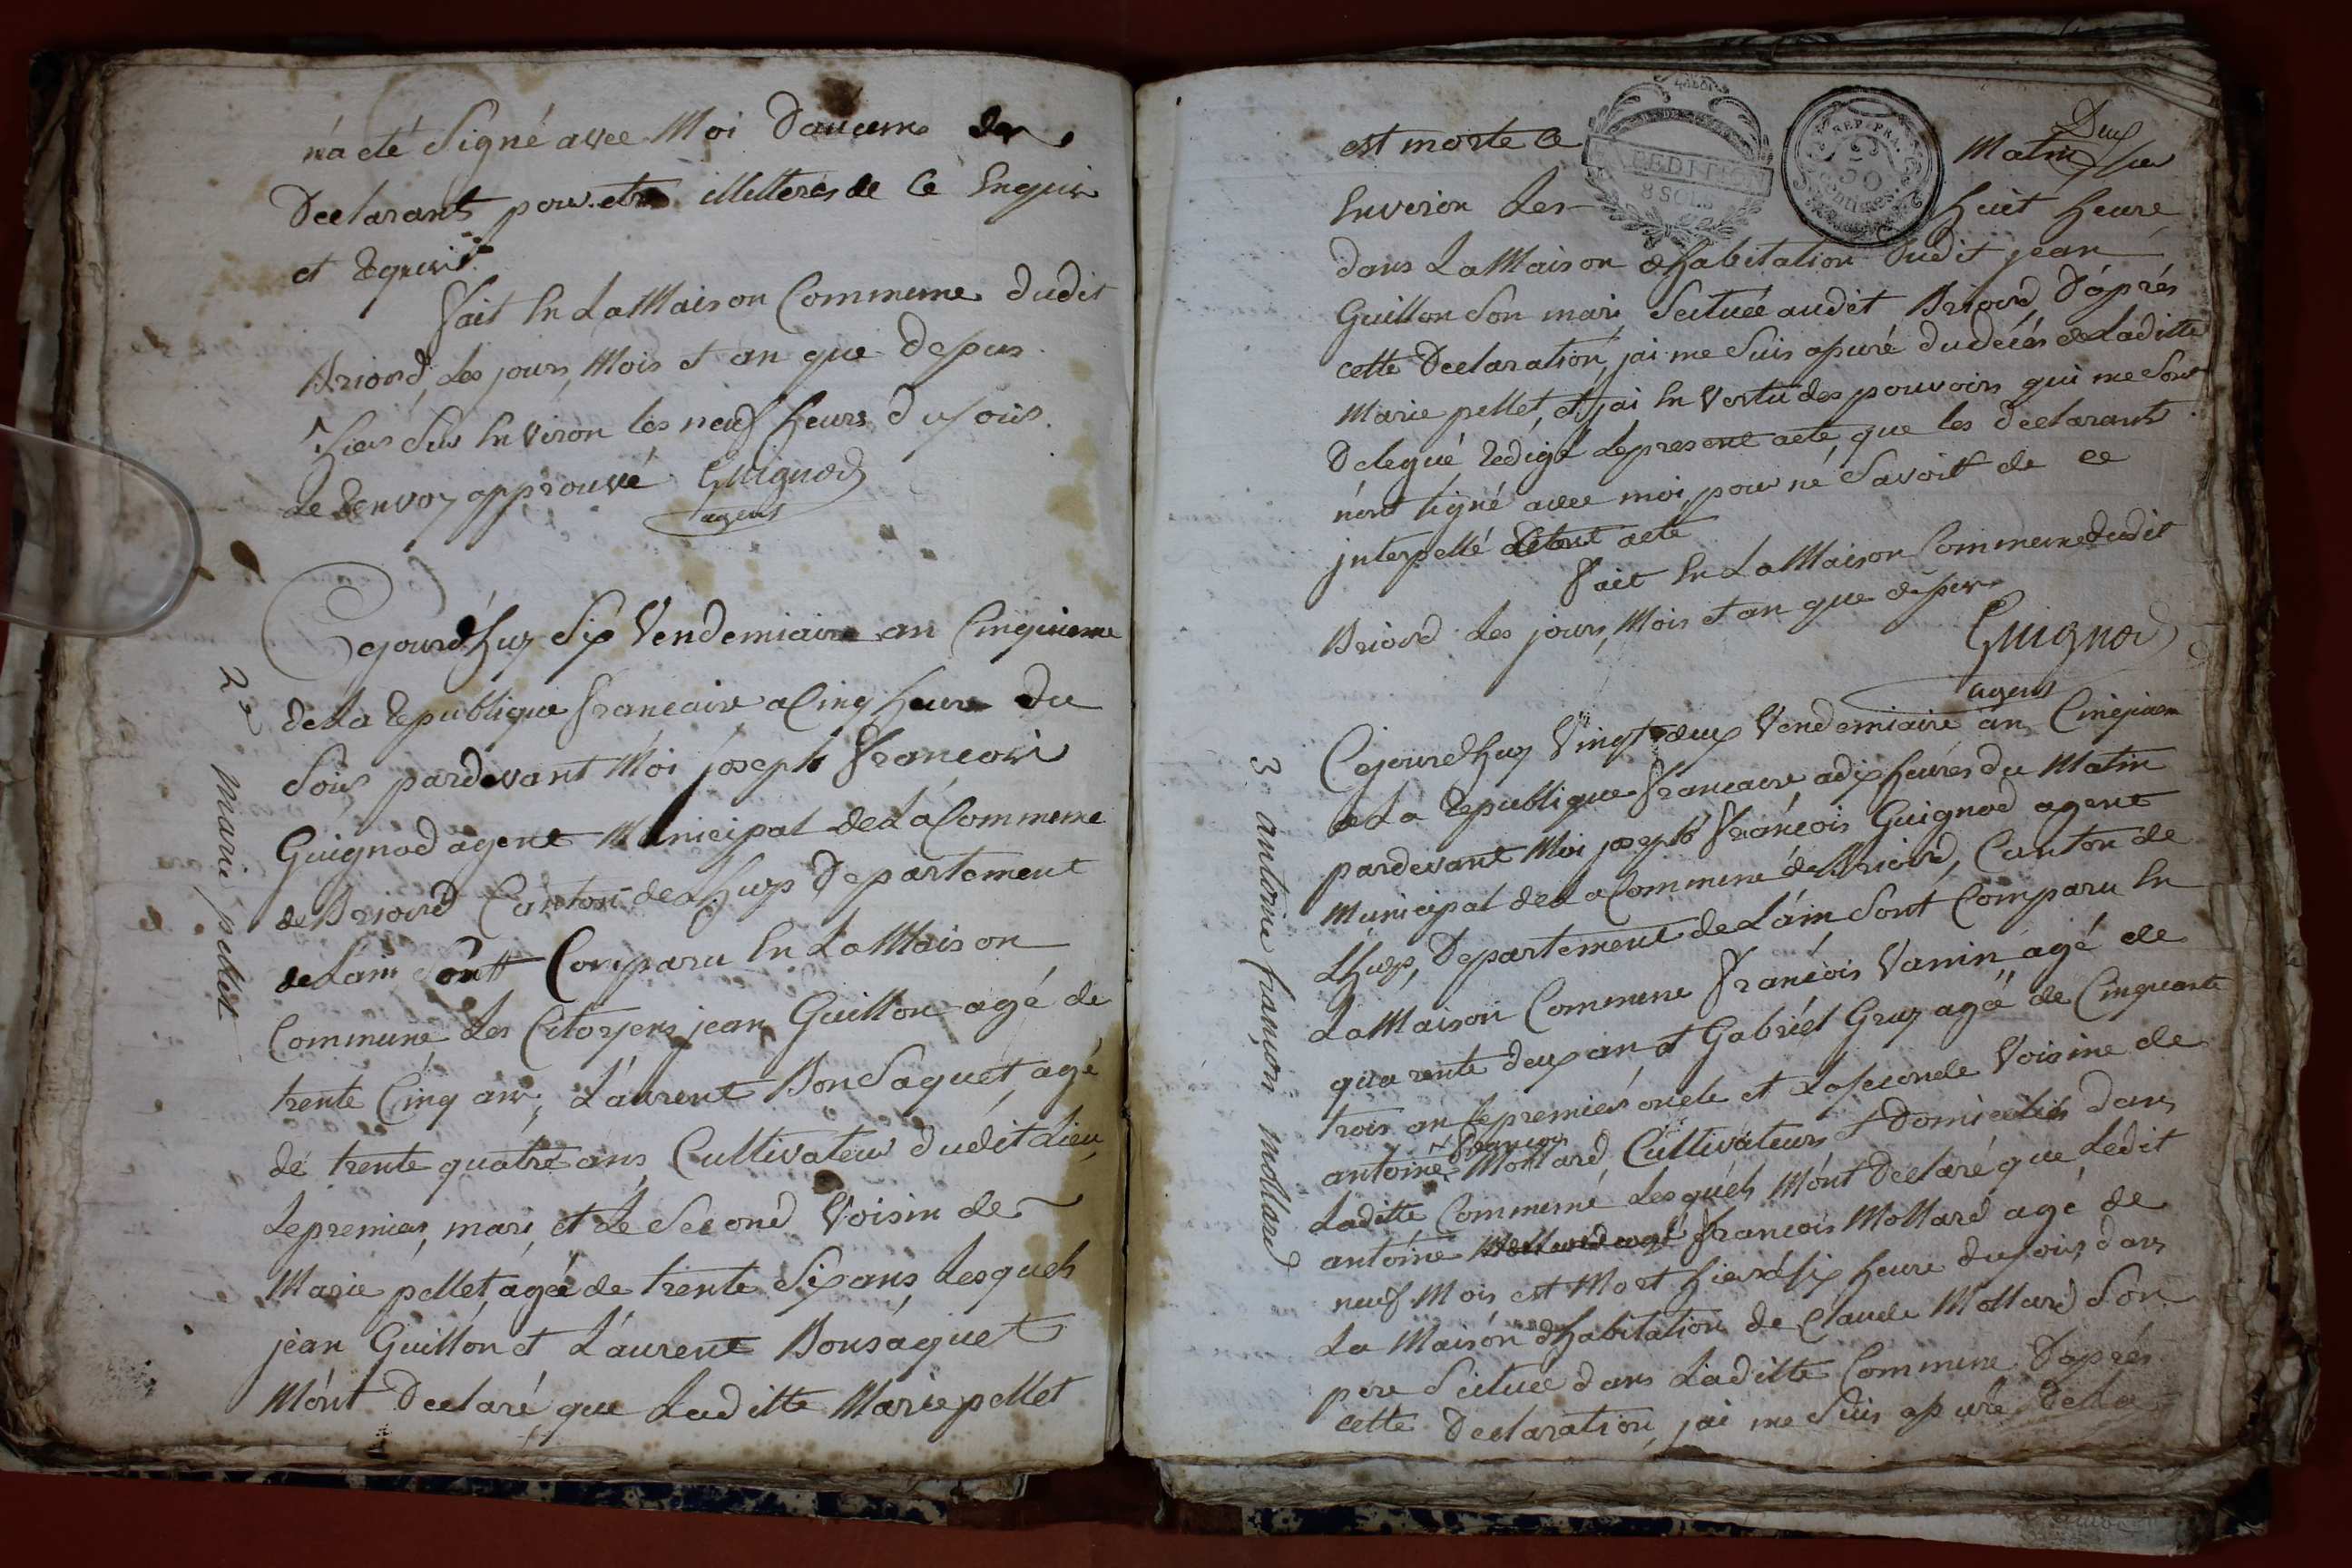 n'a eté Signé avec Moi D'aucuns des
Declarants pour etre illitterés de Ce Enquis
et Requis
fait En La Maison Commune dudit
Briord, Les jours, Mois et an que depus
hier Sur Environ les neuf heurs du soir.
Le Renvoy approuvé Guignod
agent
Cejourd'huy Six Vendemiaire an Cinquieme
de La Republique francaise a Cinq heure du
Soir pardevant Moi joseph francois
Guignod agent Municipal de La Commune
de Briord Canton de Lhuys Departement
de Lain Sont Comparu En La Maison
Commune Les Citoyens jean Guillon agé de
trente Cinq ans, Laurent Bonsaquet, agé
de trente quatre ans Cultivateur dudit Lieu,
Le premier, mari, et Le Second Voisin de
Marie pellet, agée de trente Six ans, Lesquels
jean Guillon et Laurent Bonsaquet
M'ont Declaré que Laditte Marie pellet
2e marie pellet
est morte Ce Matin
Deux
Environ Les huit heure
LA LOI
EXPEDITION
8 SOLS
REP. FRA.
50
Centimes
dans La Maison d'habitation dudit jean
Guillon Son mari Scituée audit Briord, D'après
cette Declaration, jai me Suis apuré du décés de Laditte
Marie pellet, et jai En Vertu des pouvoirs qui me Sont
Delegué Redigé Le present acte, que les declarants
n'ont signé avec moi, pour ne Savoir de ce
jnterpellé dont acte
fait En La Maison Commune dudit
Briord Les jours, Mois et an que depus
Guignod
agent
Cejourd'huy Vingt deux Vendemiaire an Cinquiem
de La Republique francaise, a dix heures du Matin
pardevant Moi joseph francois Guignod agent
Municipal de La Commune de Briord, Canton de
Lhuys, Departement de Lain Sont Comparu En
La Maison Commune francois Vanin agé de
quarente deux an et Gabriel Gruy agé de Cinquante
trois an Le premier oncle et Le second Voisine de
antoine francois Mollard, Cultivateurs et Domiciliés dans
Laditte Commune Lesquels M'ont Declaré que Ledit
antoine Mollard agé francois Mollard agé de
neuf Mois est Mort hier a six heure du soir, dans
La Maison d'habitation de Claude Mollard Son
pere Scituée dans Laditte Commune D'après
cette Declaration, jai me Suis apuré De La
3 antoine françois mollard